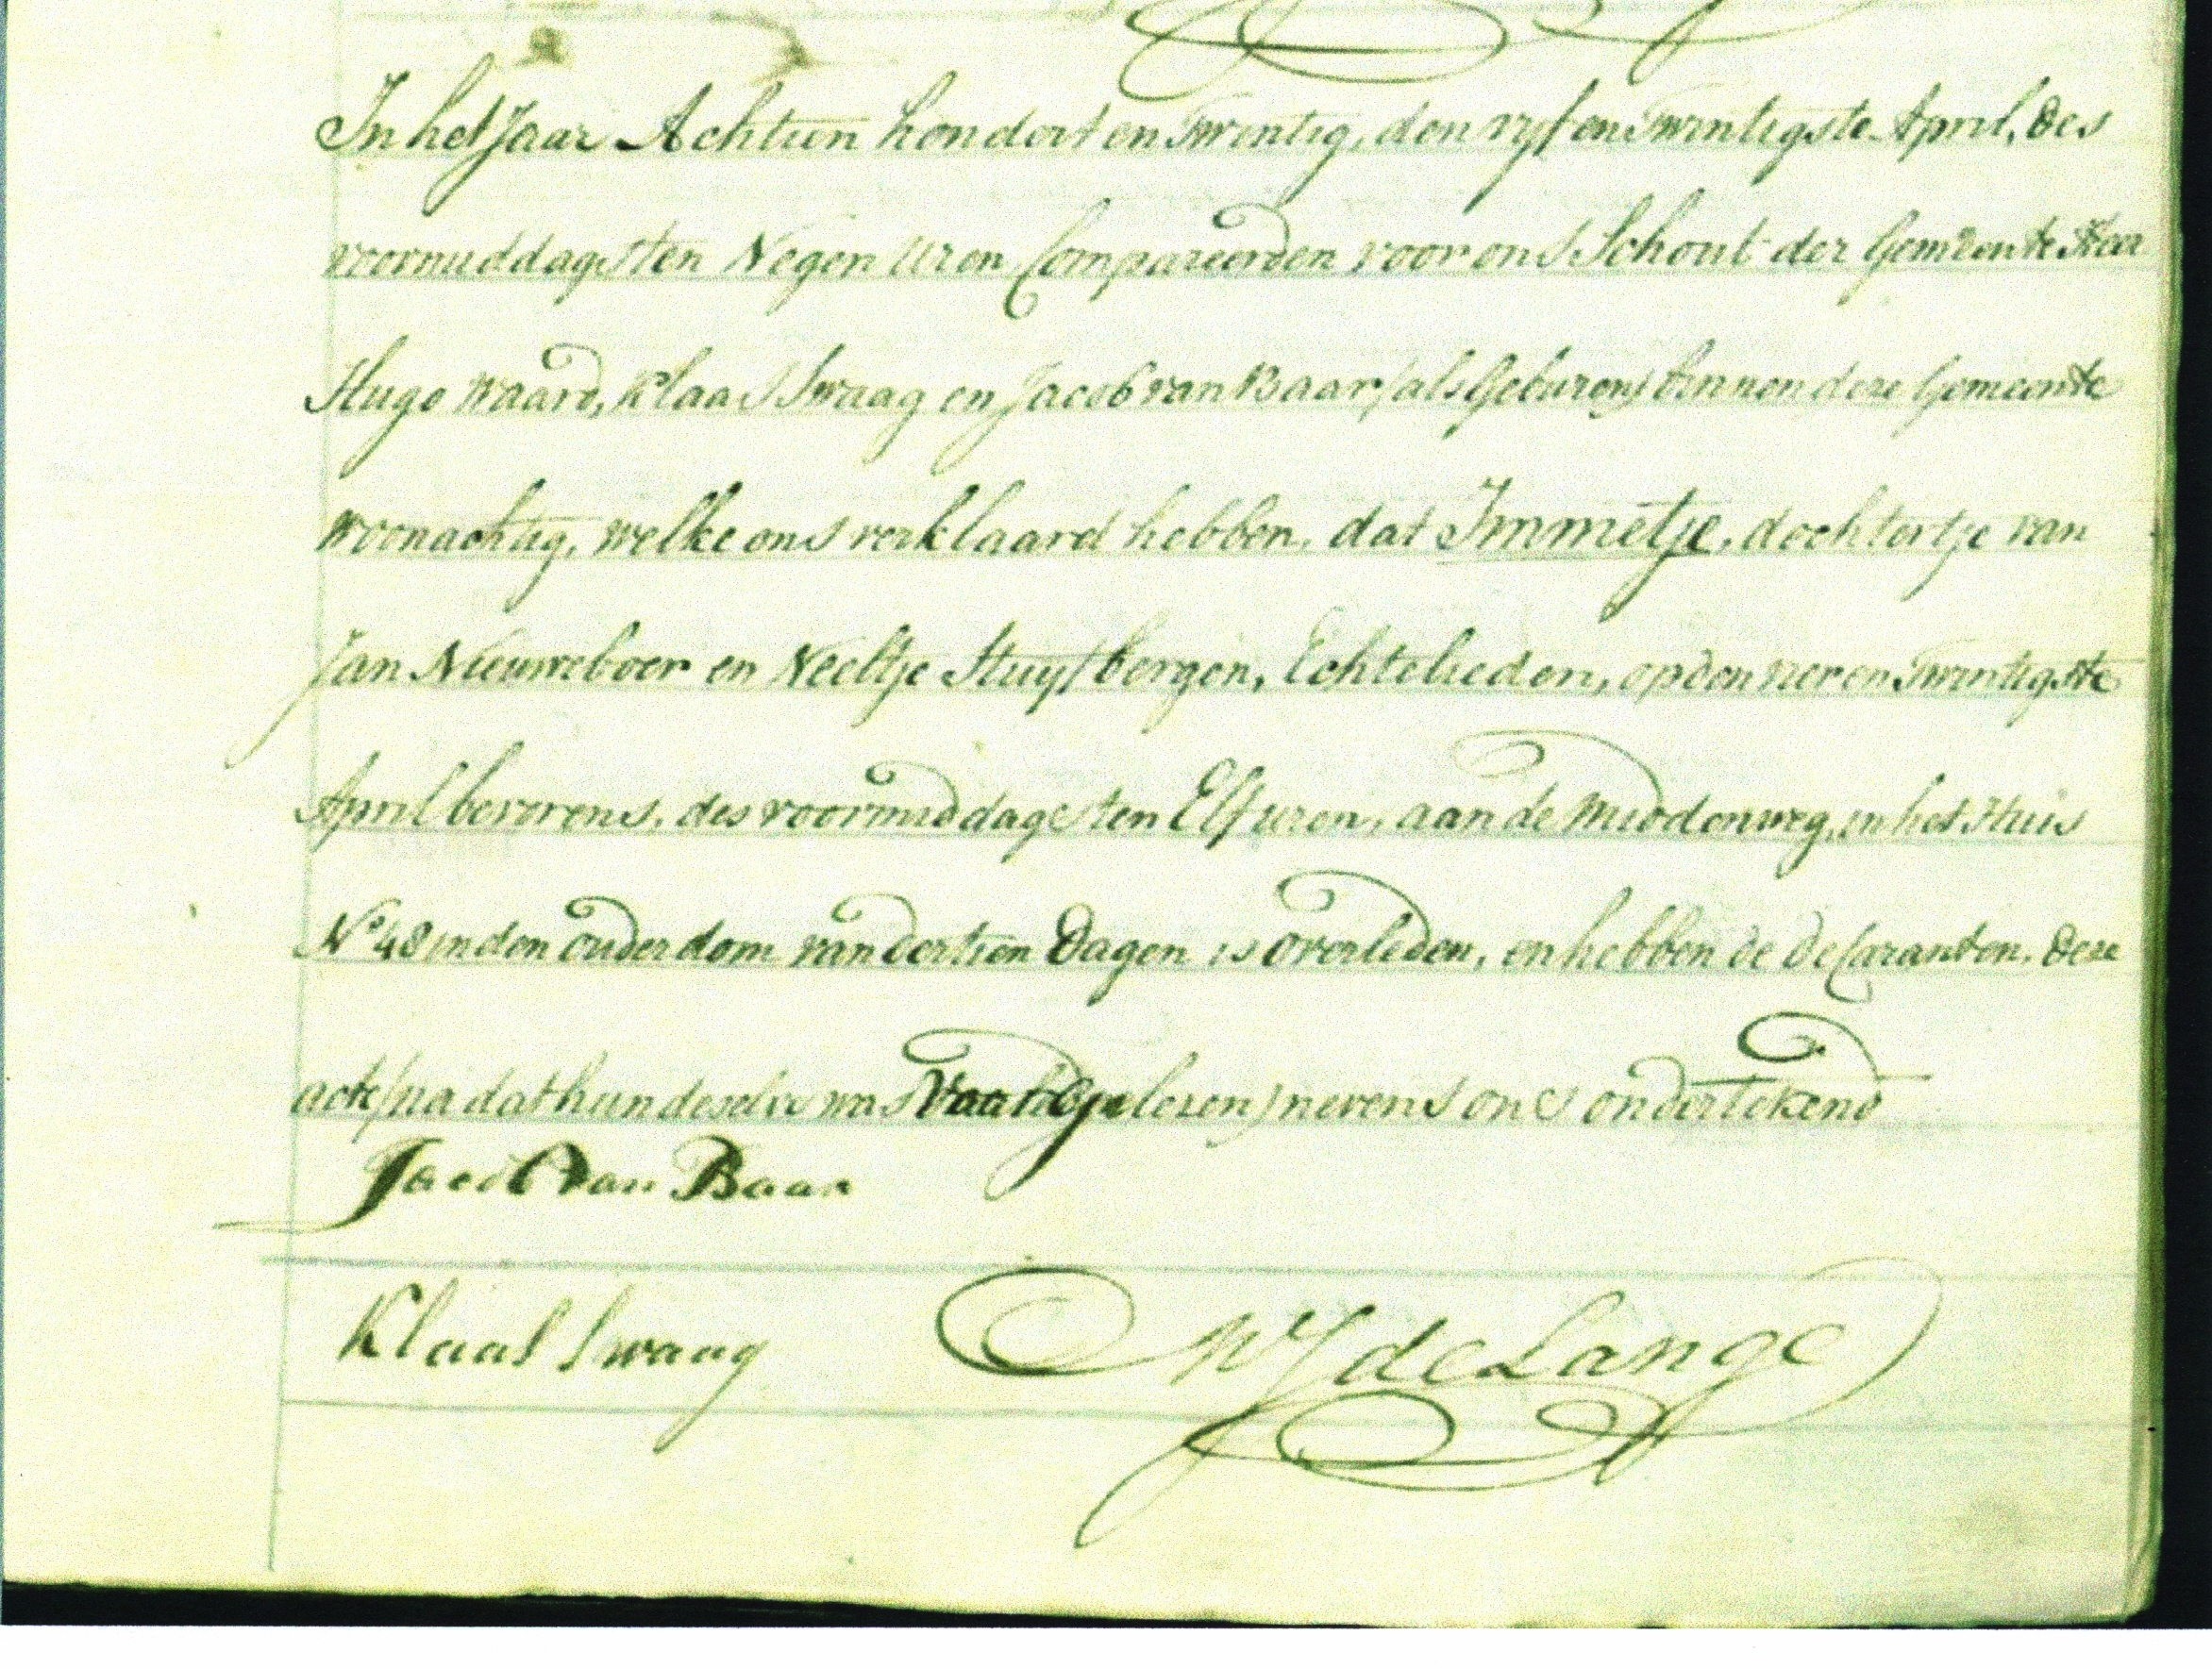 In het Jaar Achtien hondert en Twentig, den vyf en Twintigste April, des
voormiddags ten Negen Uren Compareerden voor ons Schout der Gemeente Heer
Hugo Waard, Klaas Swaag en Jacob van Baar, /als Geburen/ binnen deze Gemeente
woonachtig, welke ons verklaard hebben, dat Immetje, dochtertje van
Jan Nieuweboer en Neeltje Stuyfbergen, Echtelieden, op den vier en Twintigste
April bevorens, des voormiddags ten Elf uren, aan de Middenweg, in het Huis
No 48 in den ouderdom van dertien Dagen is overleden, en hebben de Declaranten, deze
acte /na dat hun deselve was gelezen/ nevens ons ondertekend
Jacob Van Baar
Klaas Swaag WJ de Lange